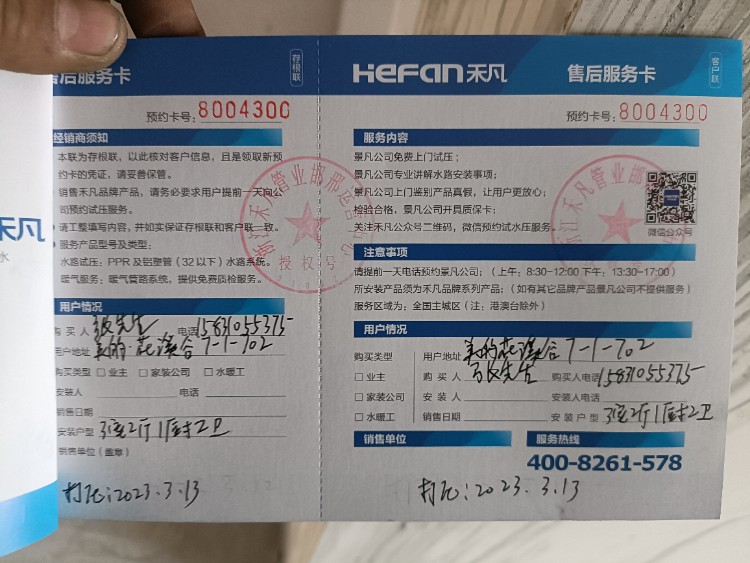 售后服务卡
存根联
预约卡号：8004300
经销商须知
本联为存根联，以此核对客户信息，且是领取新预
约卡的凭证，请妥善保管。
销售禾凡品牌产品，请务必要求用户提前一天向公
司预约试压服务。
请工整填写内容，并如实保证存根联和客户联一致。
服务产品型号及类型：
水路试压：PPR 及铝塑管（32以下）水路系统。
暖气服务：暖气管路系统，提供免费质检服务。
用户情况
购 买 人 张先生 电话 15831055375
用户地址 美的·花溪谷 7-1-702
购买类型 □ 业主 □ 家装公司 □ 水暖工
安装人 电话
销售日期
安装户型 3室2厅1厨2卫
销售单位（盖章）
打压：2023.3.13
禾凡
水
HeFan禾凡
售后服务卡
客户联
预约卡号：8004300
服务内容
景凡公司免费上门试压；
景凡公司专业讲解水路安装事项；
景凡公司上门鉴别产品真假，让用户更放心；
检验合格，景凡公司开具质保卡；
关注禾凡公众号二维码，微信预约试水压服务。
微信公众号
注意事项
请提前一天电话预约景凡公司；（上午：8:30-12:00 下午：13:30-17:00）
所安装产品须为禾凡品牌系列产品；（如有其它品牌产品景凡公司不提供服务）
服务区域为：全国主城区（注：港澳台除外）
用户情况
购买类型 用户地址 美的花溪谷 7-1-702
□ 业主 购 买 人 张先生 购买人电话 15831055375
□ 家装公司 安 装 人 安装人电话
□ 水暖工 销售日期 安 装 户 型 3室2厅1厨2卫
销售单位
服务热线
400-8261-578
打压：2023.3.13
浙江禾凡管业邯郸运营中心
授权号
浙江禾凡管业邯郸运